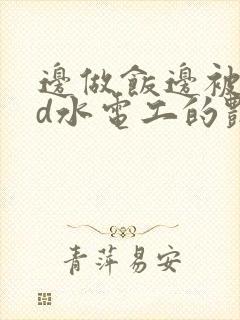 邊做飯邊被
d水電工的
青萍易安